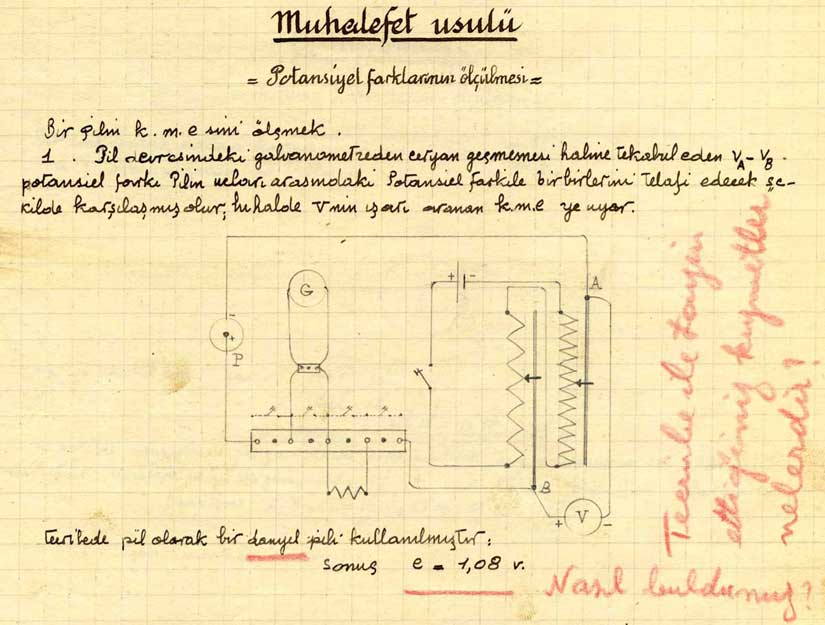 Muhalefet usulü
= Potansiyel farklarının ölçülmesi =
Bir pilin k.m.e sini ölçmek.
1. Pil devresindeki galvanometreden ceryan geçmemesi haline tekabul eden VA-VB
potansiel farkı Pilin uçları arasındaki Potansiel farkile birbirlerini telafi edecek şe-
kilde karşılaşmış olur, bu halde V nin işarı aranan k.m.e ye uyar.
G
+ -
A
-
+
P
B
+ V -
tecribede pil olarak bir danyel pili kullanılmıştır;
sonuş e = 1,08 v.
Tecrübe ile tayin
ettiğimiz kıymetler
nelerdir?
Nasıl buldunuz?